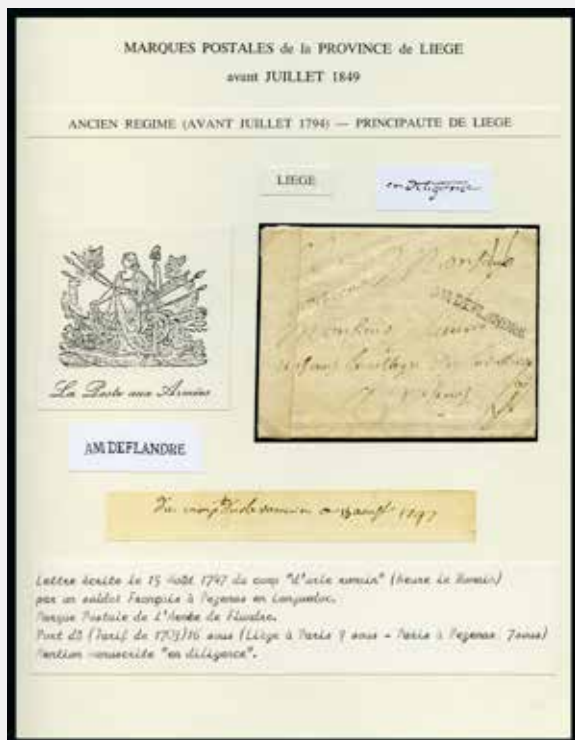 MARQUES POSTALES de la PROVINCE de LIEGE
avant JUILLET 1849
ANCIEN REGIME (AVANT JUILLET 1794) — PRINCIPAUTE DE LIEGE
LIEGE
en diligence
AM DEFLANDRE
La Poste aux Armées
AM DEFLANDRE
1747
Lettre écrite le 15 Août 1747 du camp "d'urle romain" (Heure le Romain)
par un soldat Français à Pezenas en Languedoc.
Marque Postale de l'Armée de Flandre.
Port dû (Tarif de 1703) 16 sous (Liège à Paris 9 sous - Paris à Pezenas 7sous)
Mention manuscrite "en diligence".